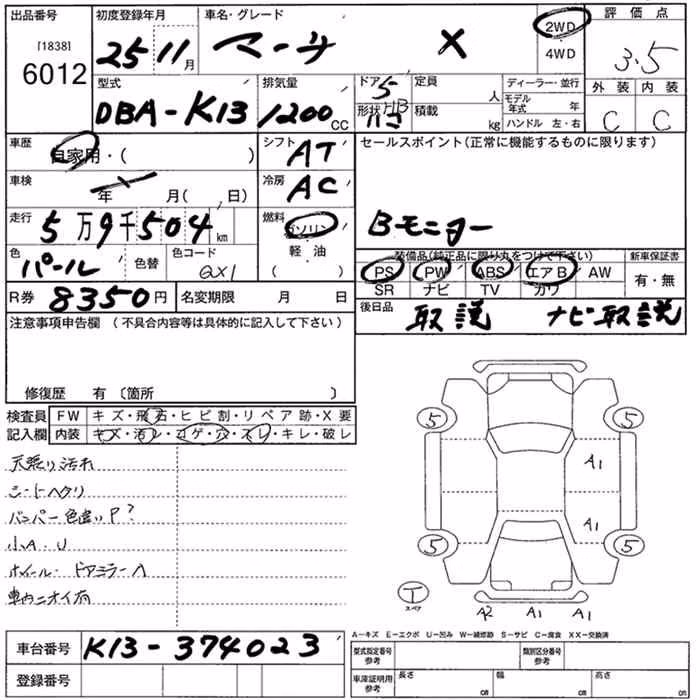 出品番号 初度登録年月 車名・グレード 2WD 評価点
[1838] 6012 25 11月 マーチ X 4WD 3.5
型式 排気量 ドア 5 定員 人 ディーラー・並行 外装 内装
DBA-K13 1200cc 形状 HB 積載 kg モデル年式 年 C C
ハンドル 左・右
車歴 自家用・( ) シフト AT セールスポイント(正常に機能するものに限ります)
車検 年 月( 、日) 冷房 AC
走行 5万9千504km 燃料 ガソリン Bモニター
色 パール 色替 色コード QX1 軽油 ( )
装備品(純正品に限り丸をつけて下さい) 新車保証書
PS PW ABS エアB AW 有・無
SR ナビ TV カワ
R券 8350円 名変期限 月 日 後日品 取説 ナビ取説
注意事項申告欄 (不具合内容等は具体的に記入して下さい)
修復歴 有 〔箇所 〕
検査員 FW キズ・飛石・ヒビ割・リペア跡・X要
記入欄 内装 キズ・汚レ・コゲ・穴・スレ・キレ・破レ
天張り汚れ
シートヘタリ
バンパー色違いP?
小A・U
ホイール・ドアミラーA
車内ニオイ有
5 5
A1
A1
5 5
T
スペア
A2 A1 A1
A-キズ E-エクボ U-凹み W-補修跡 S-サビ C-腐食 XX-交換済
車台番号 K13-374023 型式指定番号 参考 類別区分番号 参考
登録番号 車庫証明用 参考 長さ cm 幅 cm 高さ cm